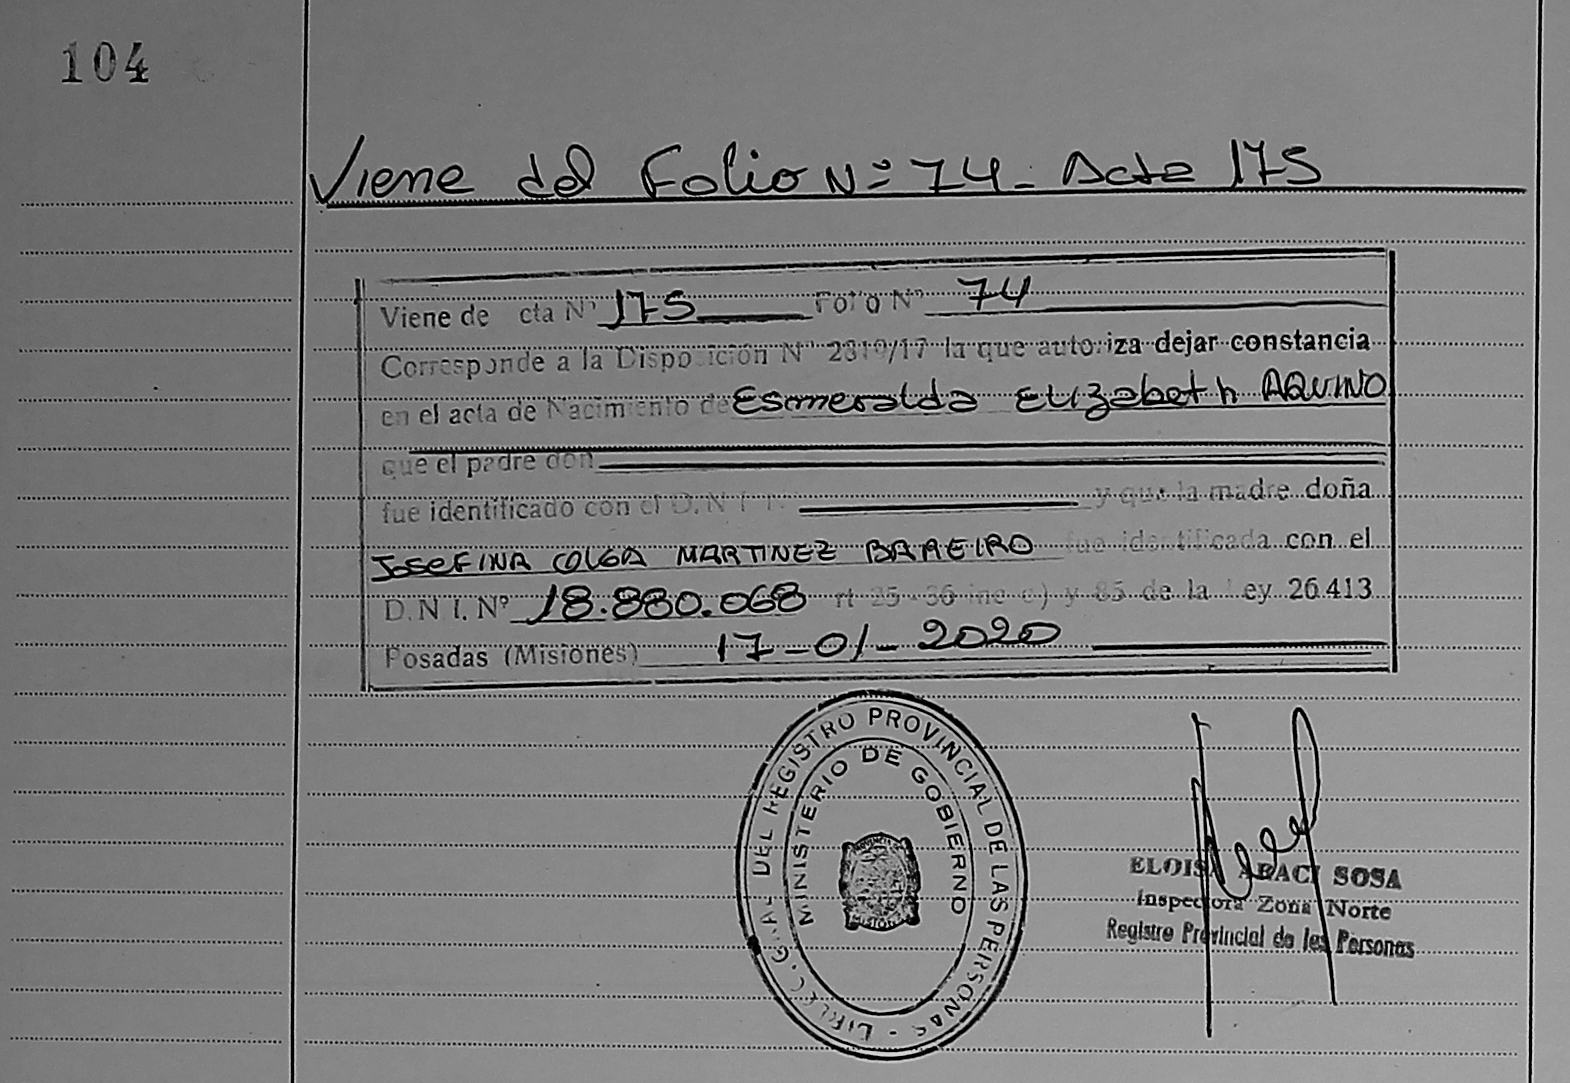 104
Viene del Folio Nº 74 - Acta 175
Viene de cta Nº 175 Folio Nº 74
Corresponde a la Disposición Nº 2319/17 la que autoriza dejar constancia
en el acta de Nacimiento de Esmeralda Elizabeth AQUINO
que el padre don
fue identificado con el D.N.I. y que la madre doña
JOSEFINA MARTINEZ BAREIRO fue identificada con el
D.N.I. Nº 18.880.068 rt 25-36 inc c) y 85 de la Ley 26.413
Posadas (Misiones) 17-01-2020
DEL REGISTRO PROVINCIAL DE LAS PERSONAS
MINISTERIO DE GOBIERNO
ELOISA SOSA
Inspectora Zona Norte
Registro Provincial de las Personas